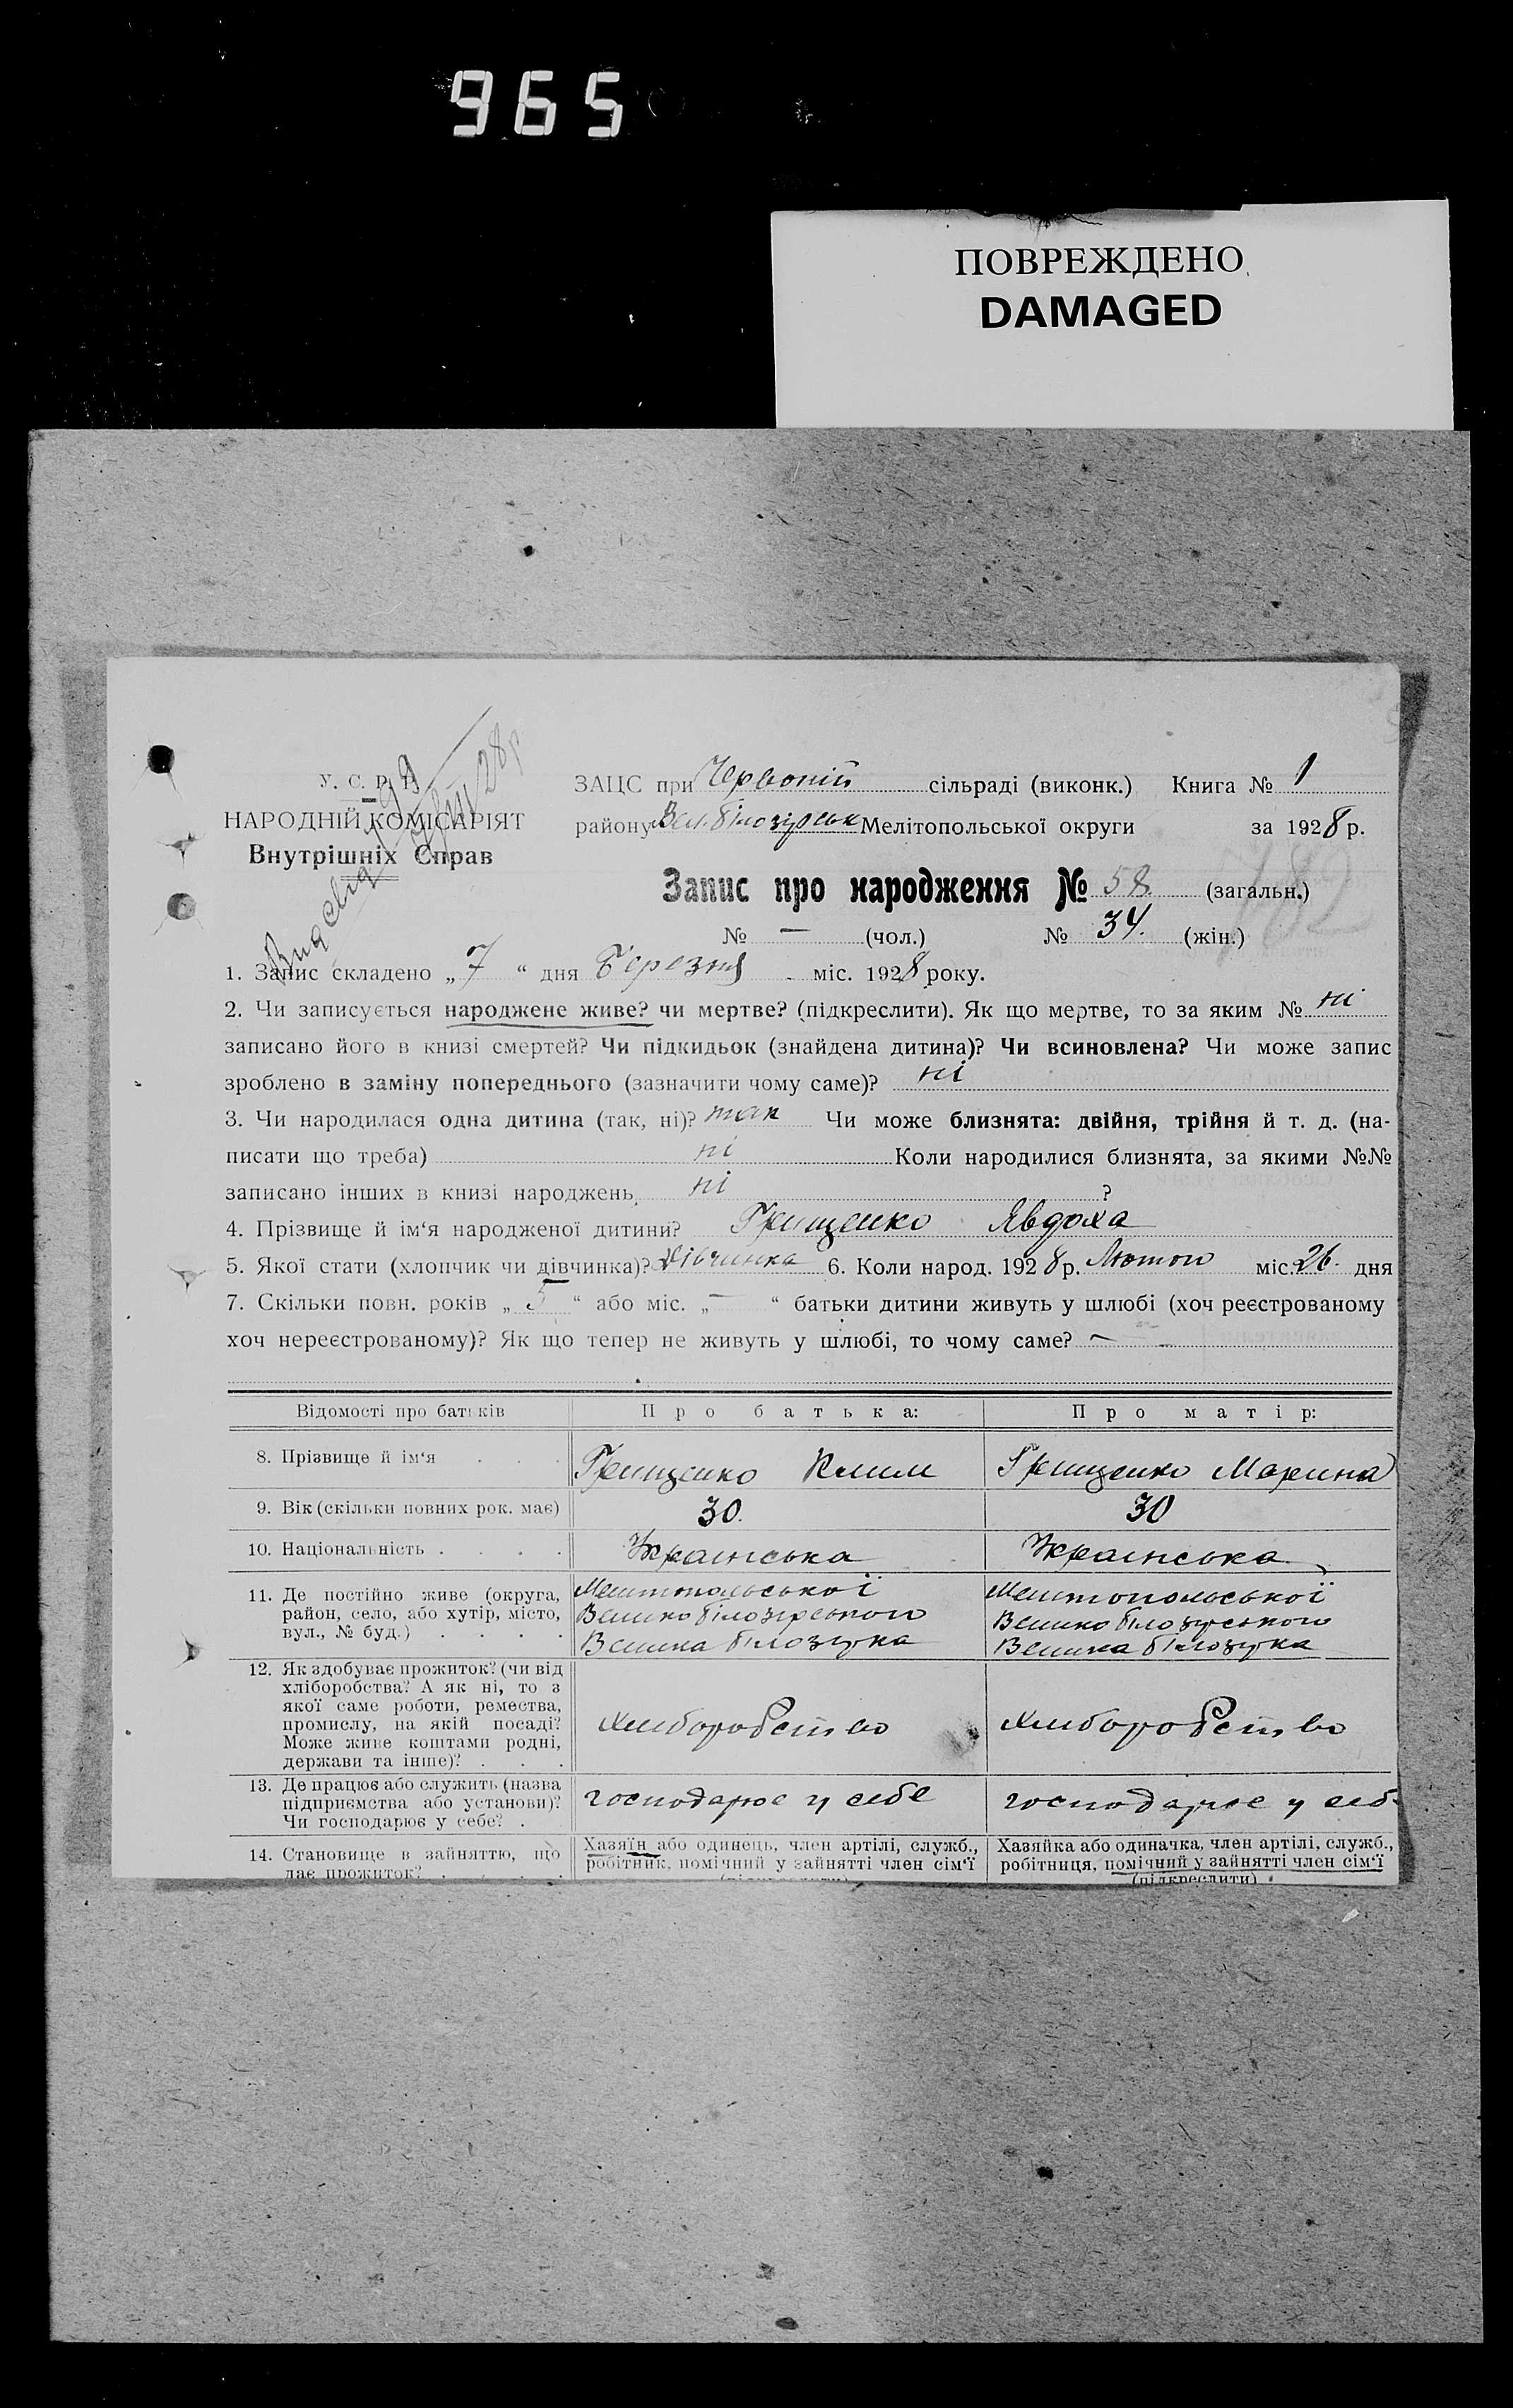 965
ПОВРЕЖДЕНО
DAMAGED
У. С. Р. Р.
НАРОДНІЙ КОМІСАРІЯТ
Внутрішніх Справ
ЗАЦС при Червоній сільраді (виконк.) Книга № 1
району Вел. Білозірськ Мелітопольської округи за 1928 р.
Запис про народження № 58 (загальн.)
782
№ — (чол.) № 34. (жін.)
1. Запис складено „7“ дня Березня міс. 1928 року.
2. Чи записується народжене живе? чи мертве? (підкреслити). Як що мертве, то за яким № ні
записано його в книзі смертей? Чи підкидьок (знайдена дитина)? Чи всиновлена? Чи може запис
зроблено в заміну попереднього (зазначити чому саме)? ні
3. Чи народилася одна дитина (так, ні)? так Чи може близнята: двійня, трійня й т. д. (на-
писати що треба) ні Коли народилися близнята, за якими №№
записано інших в книзі народжень, ні ?
4. Прізвище й ім‘я народженої дитини? Грищенко Явдоха
5. Якої стати (хлопчик чи дівчинка)? дівчинка 6. Коли народ. 1928 р. Лютого міс. 26. дня
7. Скільки повн. років „ 5 “ або міс. „ — “ батьки дитини живуть у шлюбі (хоч реєстрованому
хоч нереєстрованому)? Як що тепер не живуть у шлюбі, то чому саме? —
Відомості про батьків Про батька: Про матір:
8. Прізвище й ім‘я Грищенко Клим Грищенко Марина
9. Вік (скільки повних рок. має) 30. 30
10. Національність Українська Українська
11. Де постійно живе (округа,
район, село, або хутір, місто,
вул., № буд.)
Мелитопольської
Велико білозірського
Велика білозірка
Мелитопольської
Велико білозірського
Велика білозірка
12. Як здобуває прожиток? (чи від
хліборобства? А як ні, то з
якої саме роботи, ремества,
промислу, на якій посаді?
Може живе коштами родні,
держави та інше)?
Хлиборобство Хлиборобство
13. Де працює або служить (назва
підприємства або установи)?
Чи господарює у себе?
господарює у себе господарює у себ
14. Становище в зайняттю, що
дає прожиток?
Хазяїн або одинець, член артілі, служб.,
робітник, помічний у зайнятті член сім‘ї
Хазяйка або одиначка, член артілі, служб.,
робітниця, помічний у зайнятті член сім‘ї
(підкреслити)